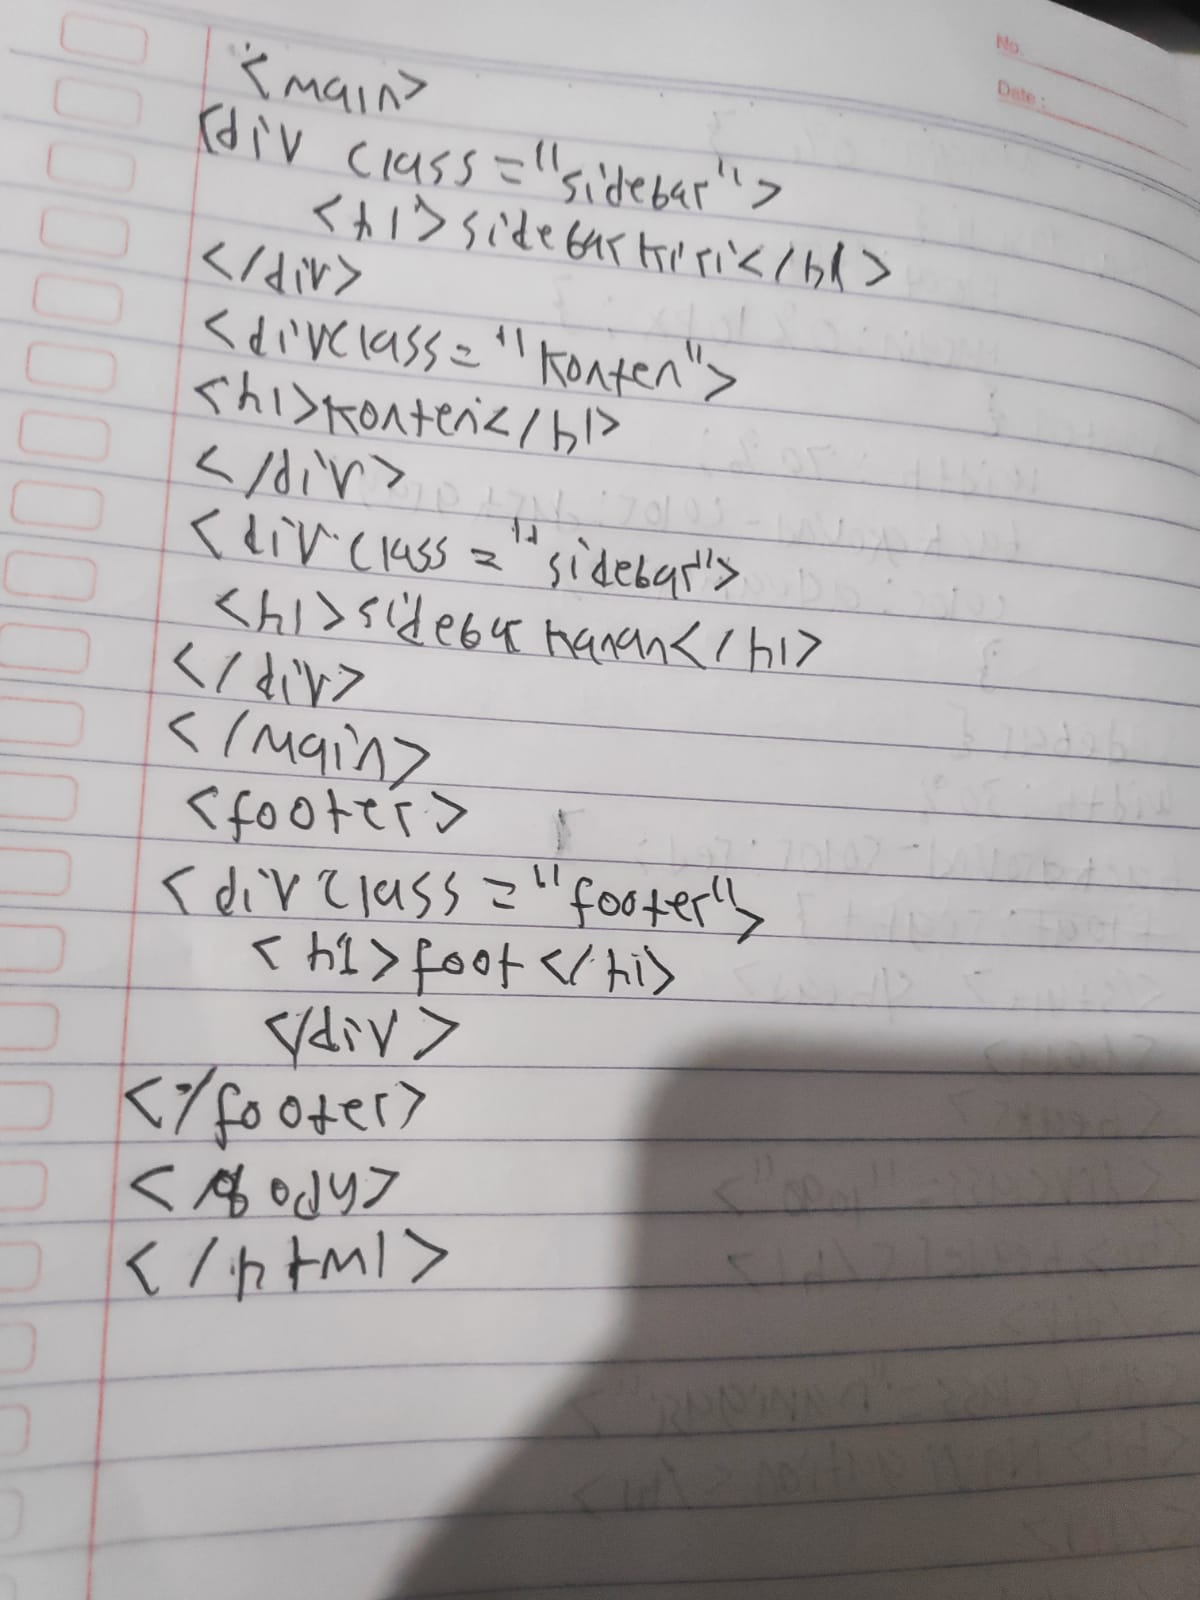 No.
Date:
<main>
<div class="sidebar">
<h1>sidebar kiri</h1>
</div>
<divclass="konten">
<h1>konten</h1>
</div>
<div class="sidebar">
<h1>sidebar kanan</h1>
</div>
</main>
<footer>
<div class="footer">
<h1>foot</hi>
</div>
</footer>
</body>
</html>